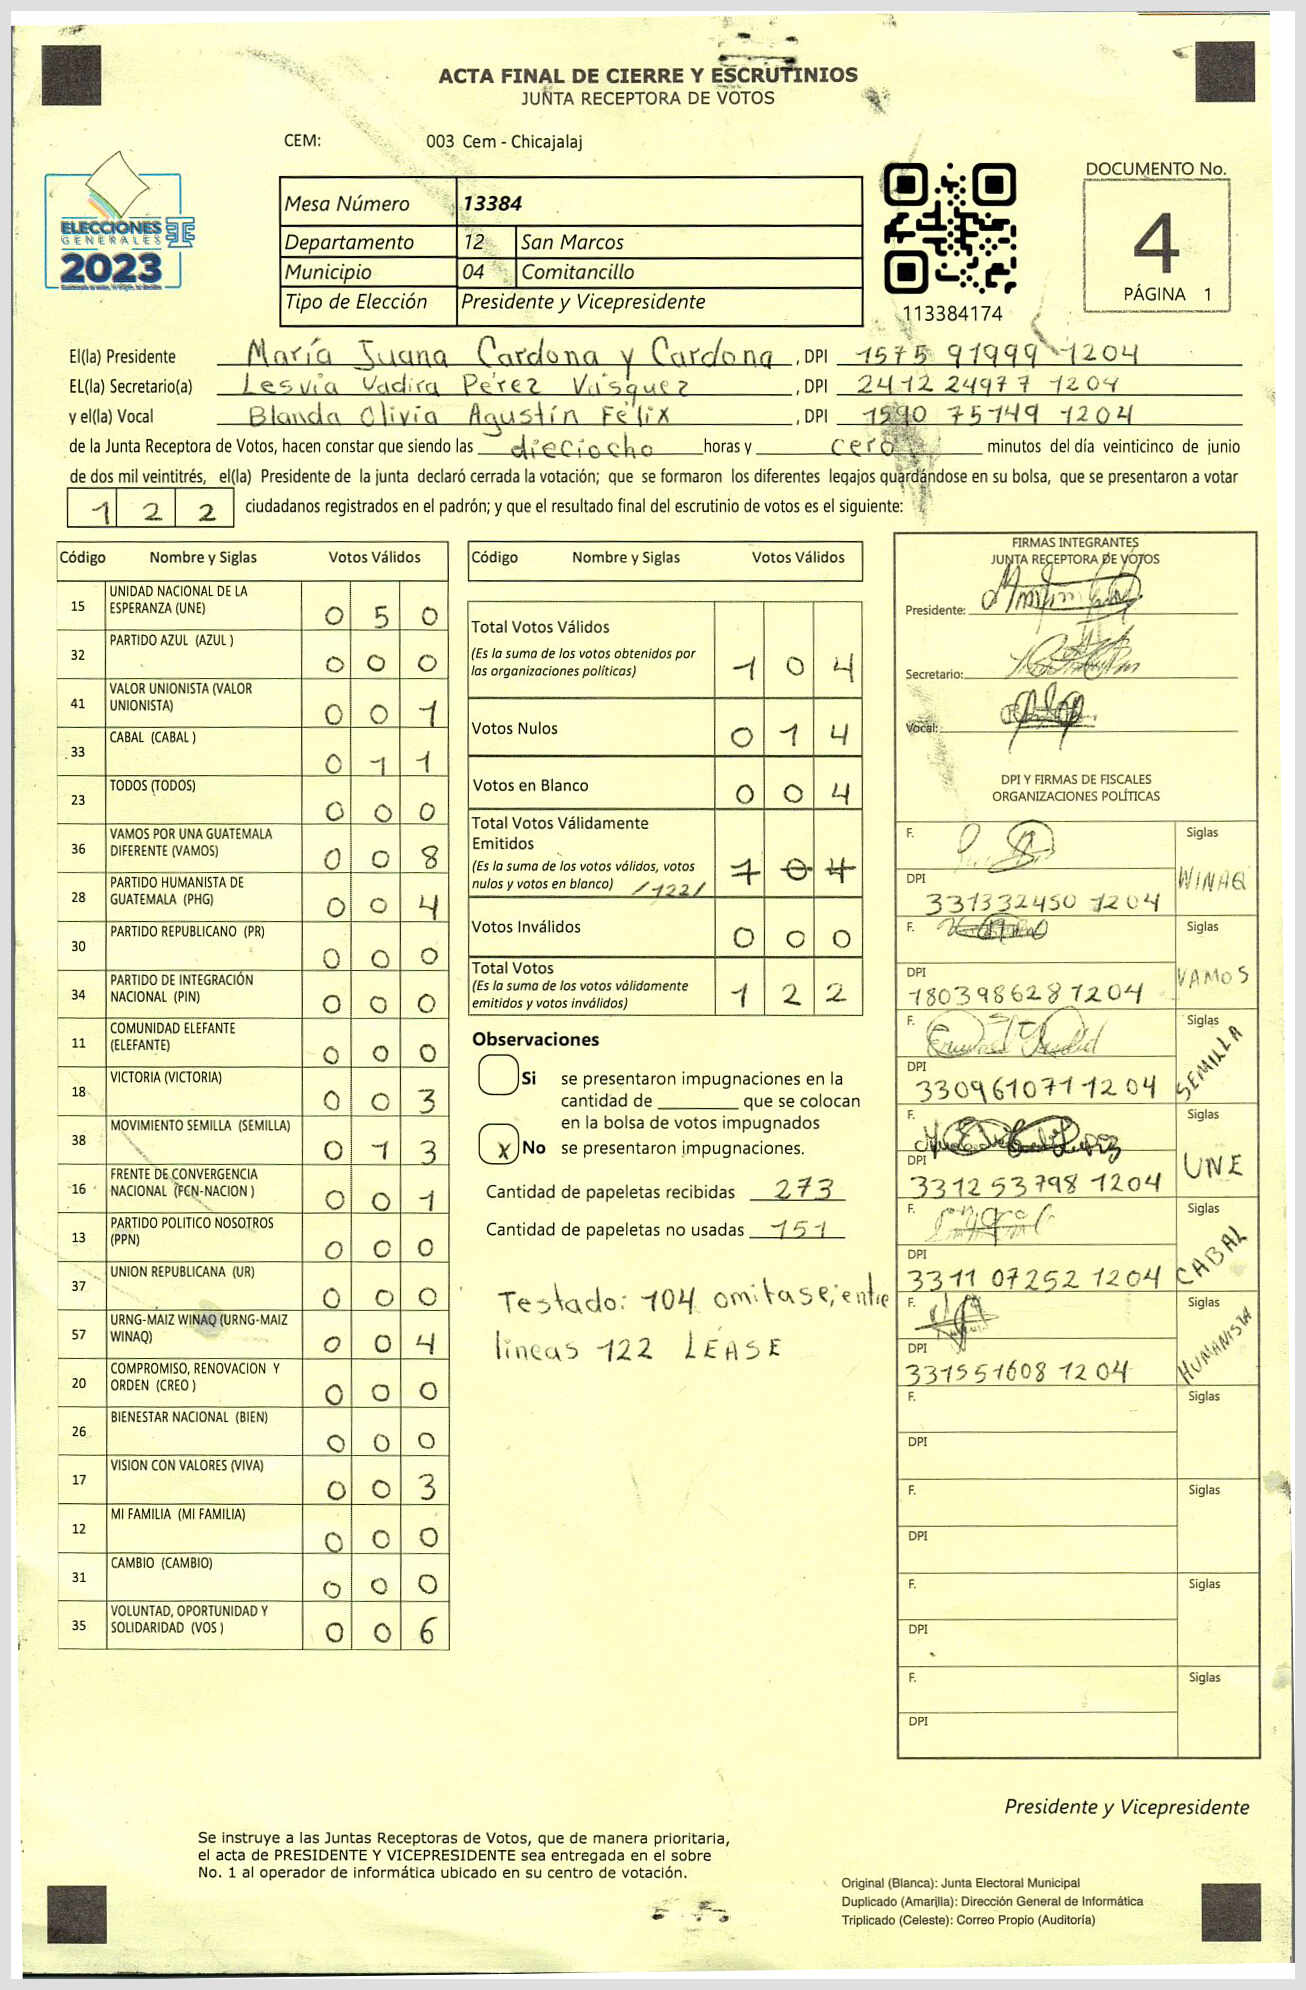 ACTA FINAL DE CIERRE Y ESCRUTINIOS
JUNTA RECEPTORA DE VOTOS
CEM: 003 Cem - Chicajalaj
ELECCIONES
GENERALES
2023
Mesa Número 13384
Departamento 12 San Marcos
Municipio 04 Comitancillo
Tipo de Elección Presidente y Vicepresidente
113384174
DOCUMENTO No.
4
PÁGINA 1
El(la) Presidente María Juana Cardona y Cardona, DPI 1575 91999 1204
EL(la) Secretario(a) Lesvia Yadira Pérez Vásquez, DPI 2412 24977 1204
y el(la) Vocal Blanda Olivia Agustín Félix, DPI 1590 75149 1204
de la Junta Receptora de Votos, hacen constar que siendo las dieciocho horas y cero minutos del día veinticinco de junio
de dos mil veintitrés, el(la) Presidente de la junta declaró cerrada la votación; que se formaron los diferentes legajos guardándose en su bolsa, que se presentaron a votar
1 2 2 ciudadanos registrados en el padrón; y que el resultado final del escrutinio de votos es el siguiente:
Código Nombre y Siglas Votos Válidos
15 UNIDAD NACIONAL DE LA
ESPERANZA (UNE) 0 5 0
32 PARTIDO AZUL (AZUL ) 0 0 0
41 VALOR UNIONISTA (VALOR
UNIONISTA) 0 0 1
33 CABAL (CABAL ) 0 1 1
23 TODOS (TODOS) 0 0 0
36 VAMOS POR UNA GUATEMALA
DIFERENTE (VAMOS) 0 0 8
28 PARTIDO HUMANISTA DE
GUATEMALA (PHG) 0 0 4
30 PARTIDO REPUBLICANO (PR) 0 0 0
34 PARTIDO DE INTEGRACIÓN
NACIONAL (PIN) 0 0 0
11 COMUNIDAD ELEFANTE
(ELEFANTE) 0 0 0
18 VICTORIA (VICTORIA) 0 0 3
38 MOVIMIENTO SEMILLA (SEMILLA) 0 1 3
16 FRENTE DE CONVERGENCIA
NACIONAL (FCN-NACION ) 0 0 1
13 PARTIDO POLITICO NOSOTROS
(PPN) 0 0 0
37 UNION REPUBLICANA (UR) 0 0 0
57 URNG-MAIZ WINAQ (URNG-MAIZ
WINAQ) 0 0 4
20 COMPROMISO, RENOVACION Y
ORDEN (CREO ) 0 0 0
26 BIENESTAR NACIONAL (BIEN) 0 0 0
17 VISION CON VALORES (VIVA) 0 0 3
12 MI FAMILIA (MI FAMILIA) 0 0 0
31 CAMBIO (CAMBIO) 0 0 0
35 VOLUNTAD, OPORTUNIDAD Y
SOLIDARIDAD (VOS ) 0 0 6
Código Nombre y Siglas Votos Válidos
Total Votos Válidos
(Es la suma de los votos obtenidos por
las organizaciones políticas) 1 0 4
Votos Nulos 0 1 4
Votos en Blanco 0 0 4
Total Votos Válidamente
Emitidos
(Es la suma de los votos válidos, votos
nulos y votos en blanco) /122/ 1 0 4
Votos Inválidos 0 0 0
Total Votos
(Es la suma de los votos válidamente
emitidos y votos inválidos) 1 2 2
Observaciones
Si se presentaron impugnaciones en la
cantidad de ________ que se colocan
en la bolsa de votos impugnados
x No se presentaron impugnaciones.
Cantidad de papeletas recibidas 273
Cantidad de papeletas no usadas 151
Testado: 104 omitase; entre
lineas 122 LEASE
FIRMAS INTEGRANTES
JUNTA RECEPTORA DE VOTOS
Presidente:
Secretario:
Vocal:
DPI Y FIRMAS DE FISCALES
ORGANIZACIONES POLÍTICAS
F. Siglas
WINAQ
DPI
331332450 1204
F. Siglas
VAMOS
DPI
1803986287204
F. Siglas
SEMILLA
DPI
330961071 1204
F. Siglas
UNE
DPI
331253798 1204
F. Siglas
CABAL
DPI
3311 07252 1204
F. Siglas
HUMANISTA
DPI
331551608 1204
F. Siglas
DPI
F. Siglas
DPI
F. Siglas
DPI
F. Siglas
DPI
Presidente y Vicepresidente
Se instruye a las Juntas Receptoras de Votos, que de manera prioritaria,
el acta de PRESIDENTE Y VICEPRESIDENTE sea entregada en el sobre
No. 1 al operador de informática ubicado en su centro de votación.
Original (Blanca): Junta Electoral Municipal
Duplicado (Amarilla): Dirección General de Informática
Triplicado (Celeste): Correo Propio (Auditoría)